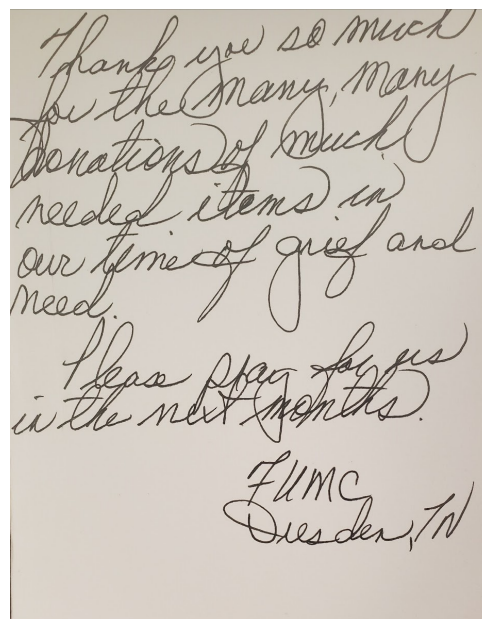 Thank you so much
for the many, many
donations of much
needed items in
our time of grief and
need.
Please pray for us
in the next months.
FUMC
Dresden, TN